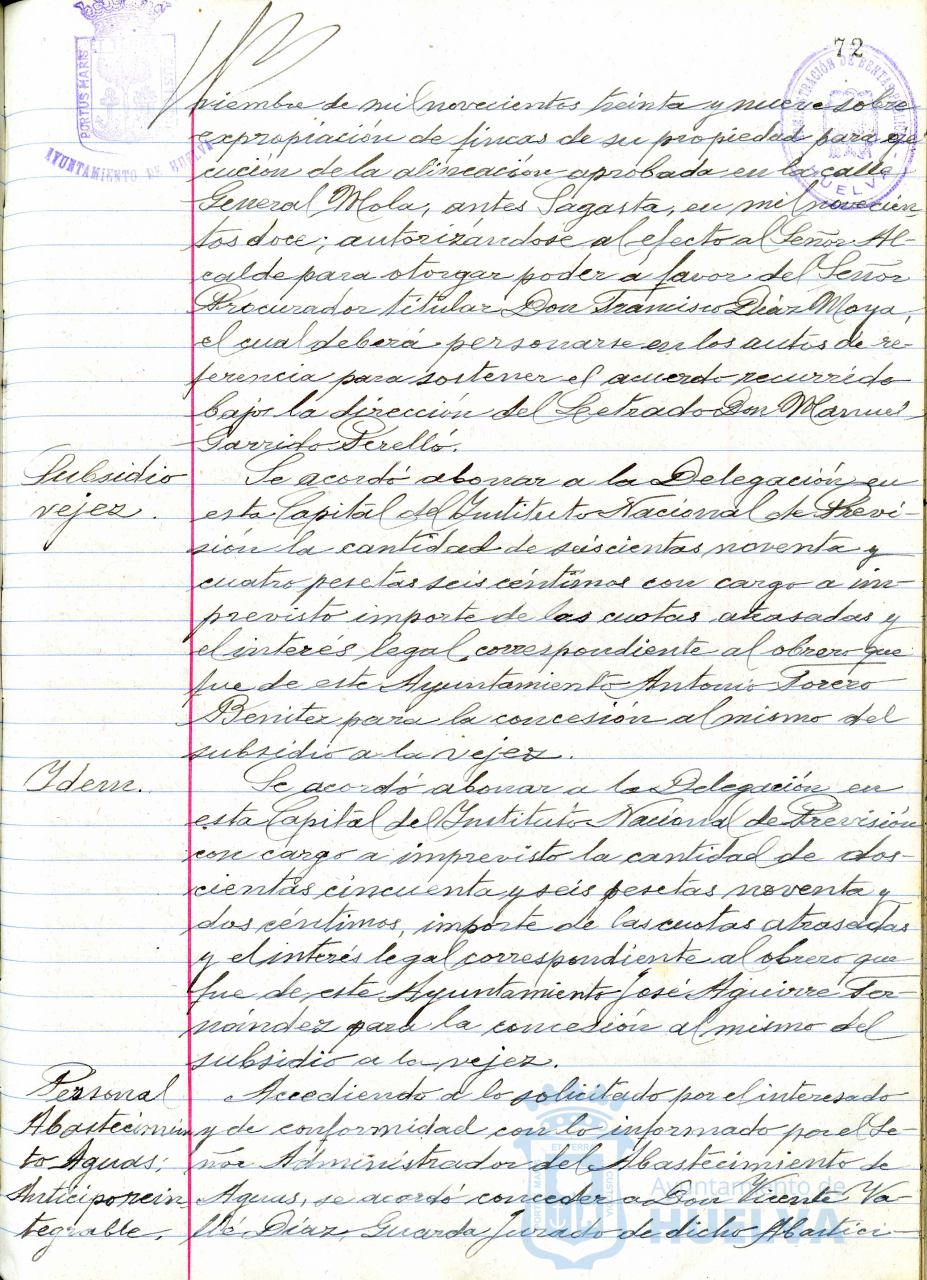 72
PORTUS MARIS
AYUNTAMIENTO DE HUELVA
HUELVA
viembre de mil novecientos treinta y nueve sobre
expropiación de fincas de su propiedad para eje
cución de la alineación aprobada en la calle
General Mola, antes Sagasta, en mil novecien
tos doce; autorizandose al efecto al Señor Al-
calde para otorgar poder a favor del Señor
Procurador titular Don Francisco Diaz Moya,
el cual deberá personarse en los autos de re-
ferencia para sostener el acuerdo recurrido
bajo la dirección del Letrado Don Manuel
Garrido Perelló.
Subsidio
vejez.
Se acordó abonar a la Delegación en
esta Capital del Instituto Nacional de Previ-
sión la cantidad de seiscientas noventa y
cuatro pesetas seis céntimos con cargo a im-
previsto importe de las cuotas atrasadas y
el interés legal correspondiente al obrero que
fue de este Ayuntamiento Antonio Torero
Benitez para la concesión al mismo del
subsidio a la vejez.
Ydem.
Se acordó abonar a la Delegación en
esta Capital del Instituto Nacional de Previsión
con cargo a imprevisto la cantidad de dos-
cientas cincuenta y seis pesetas noventa y
dos céntimos, importe de las cuotas atrasadas
y el interés legal correspondiente al obrero que
fue de este Ayuntamiento José Aguirre Fer-
nández para la concesión al mismo del
subsidio a la vejez.
Personal
Abastecimien
to Aguas;
Anticipo rein
tegrable.
Accediendo a lo solicitado por el interesado
y de conformidad con lo informado por el Se-
ñor Administrador del Abastecimiento de
Aguas, se acordó conceder a Don Vicente Va-
llé Diaz Guarda Jurado de dicho Abasteci-
Ayuntamiento de
HUELVA